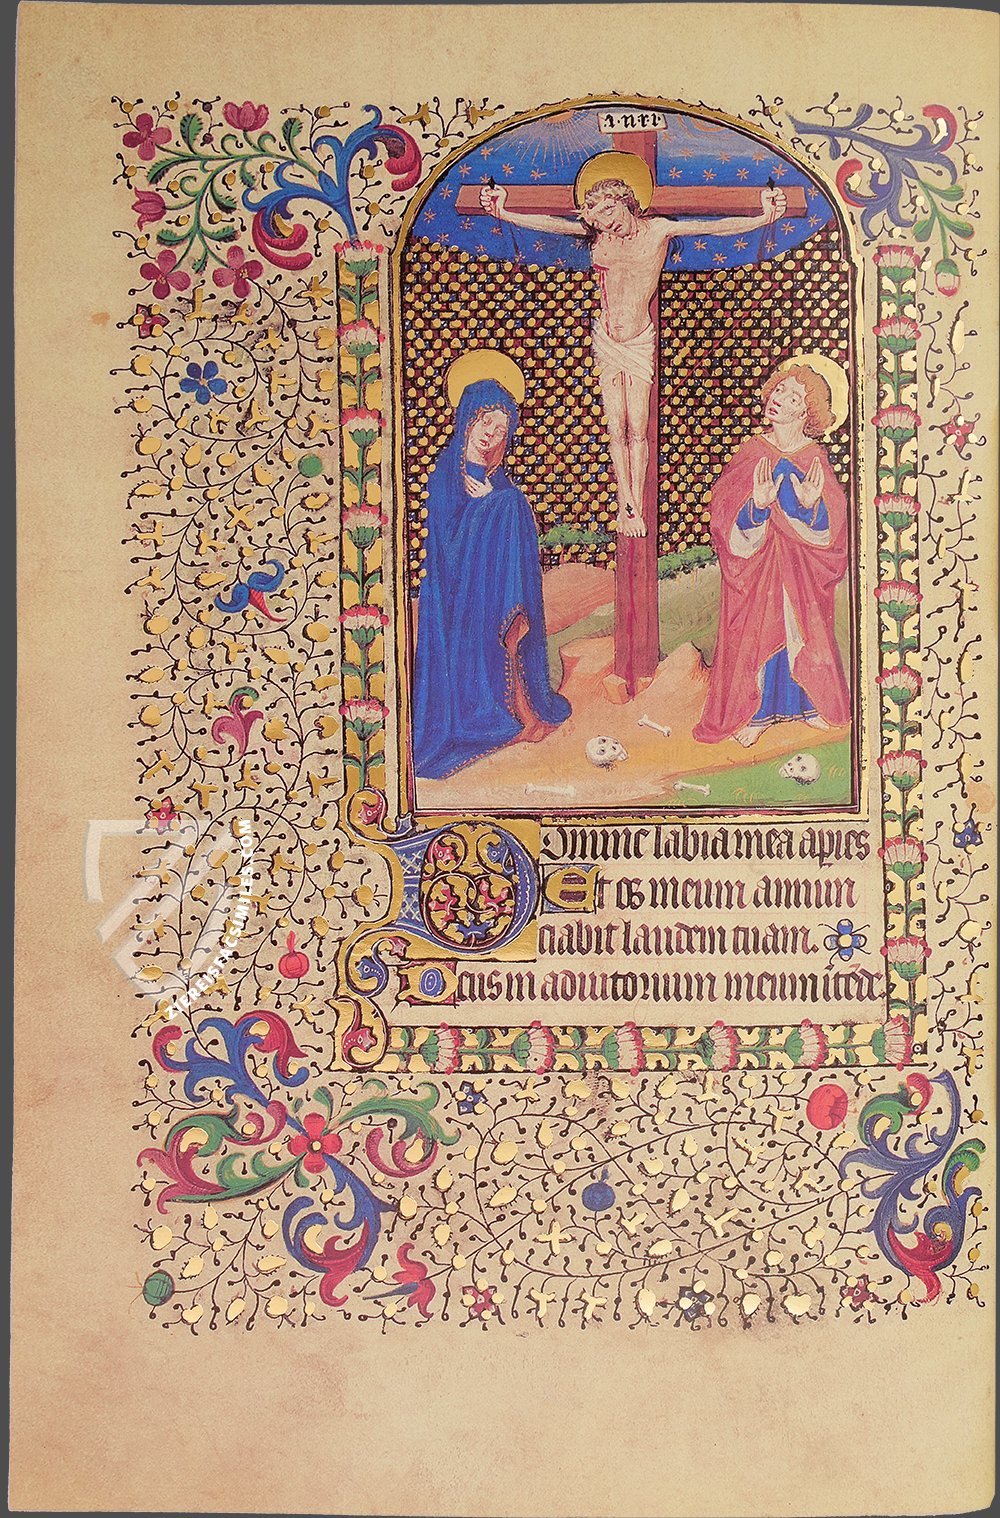 i·nri·
Domine labia mea aperies
Et os meum annun
ciabit laudem tuam.
Deus in adiutorium meum intede.
ZIEREIS FACSIMILES.COM